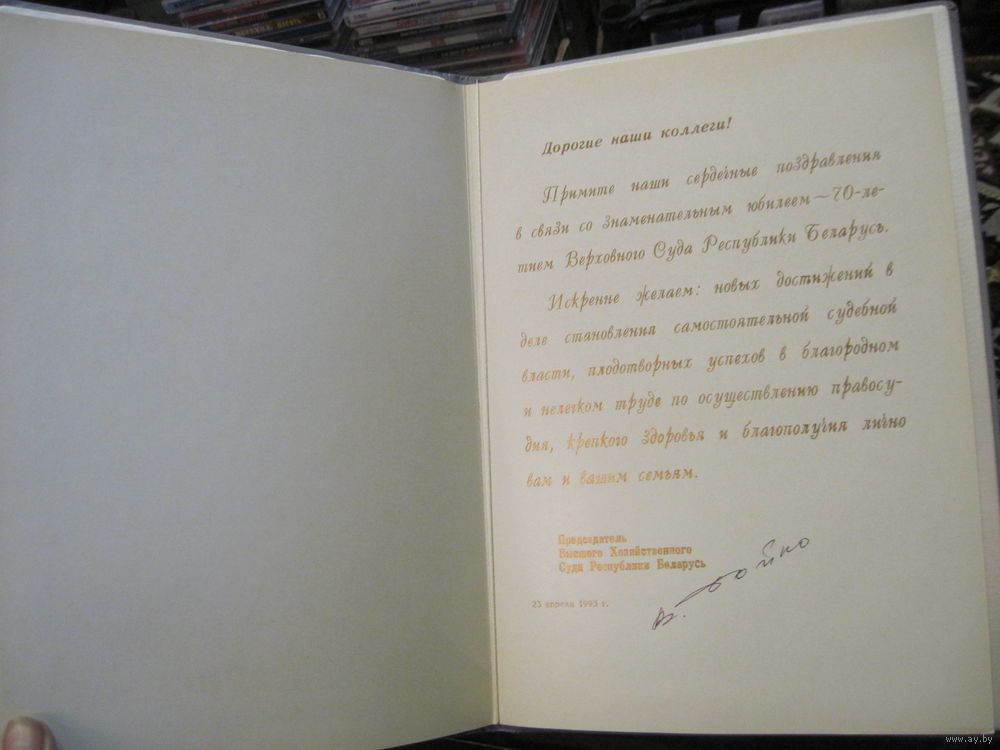 Дорогие наши коллеги!
Примите наши сердечные поздравления
в связи со знаменательным юбилеем—70-ле-
тием Верховного Суда Республики Беларусь.
Искренне желаем: новых достижений в
деле становления самостоятельной судебной
власти, плодотворных успехов в благородном
и нелегком труде по осуществлению правосу-
дия, крепкого здоровья и благополучия лично
вам и вашим семьям.
Председатель
Высшего Хозяйственного
Суда Республики Беларусь
В. Бойко
23 апреля 1993 г.
www.ay.by